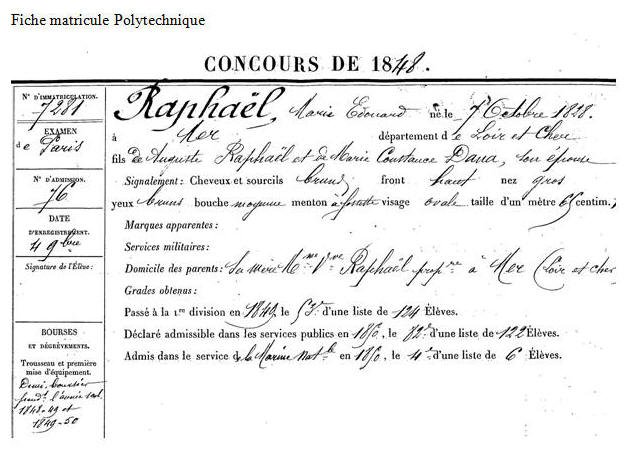 Fiche matricule Polytechnique
CONCOURS DE 1848.
N° D'IMMATRICULATION.
7281
EXAMEN
de Paris
N° D'ADMISSION.
76
DATE
D'ENREGISTREMENT.
4 9bre
Signature de l'Élève:
BOURSES
ET DÉGRÈVEMENTS.
Trousseau et première
mise d'équipement.
Demi-boursier
pendt l'année scol.
1848-49 et
1849-50
Raphaël, Marie Edouard né le 7 Octobre 1828.
à Mer département de Loir et Cher
fils de Auguste Raphaël et de Marie Constance Dana, son épouse
Signalement: Cheveux et sourcils bruns front haut nez gros
yeux bruns bouche moyenne menton à fossette visage ovale taille d'un mètre 65 centim.
Marques apparentes:
Services militaires:
Domicile des parents: Sa mère Mme Vve Raphaël propre à Mer (Loir et Cher
Grades obtenus:
Passé à la 1re division en 1849, le 53e d'une liste de 124 Élèves.
Déclaré admissible dans les services publics en 1850, le 82e d'une liste de 122 Élèves.
Admis dans le service de la Marine Natle en 1850, le 4e d'une liste de 6 Élèves.